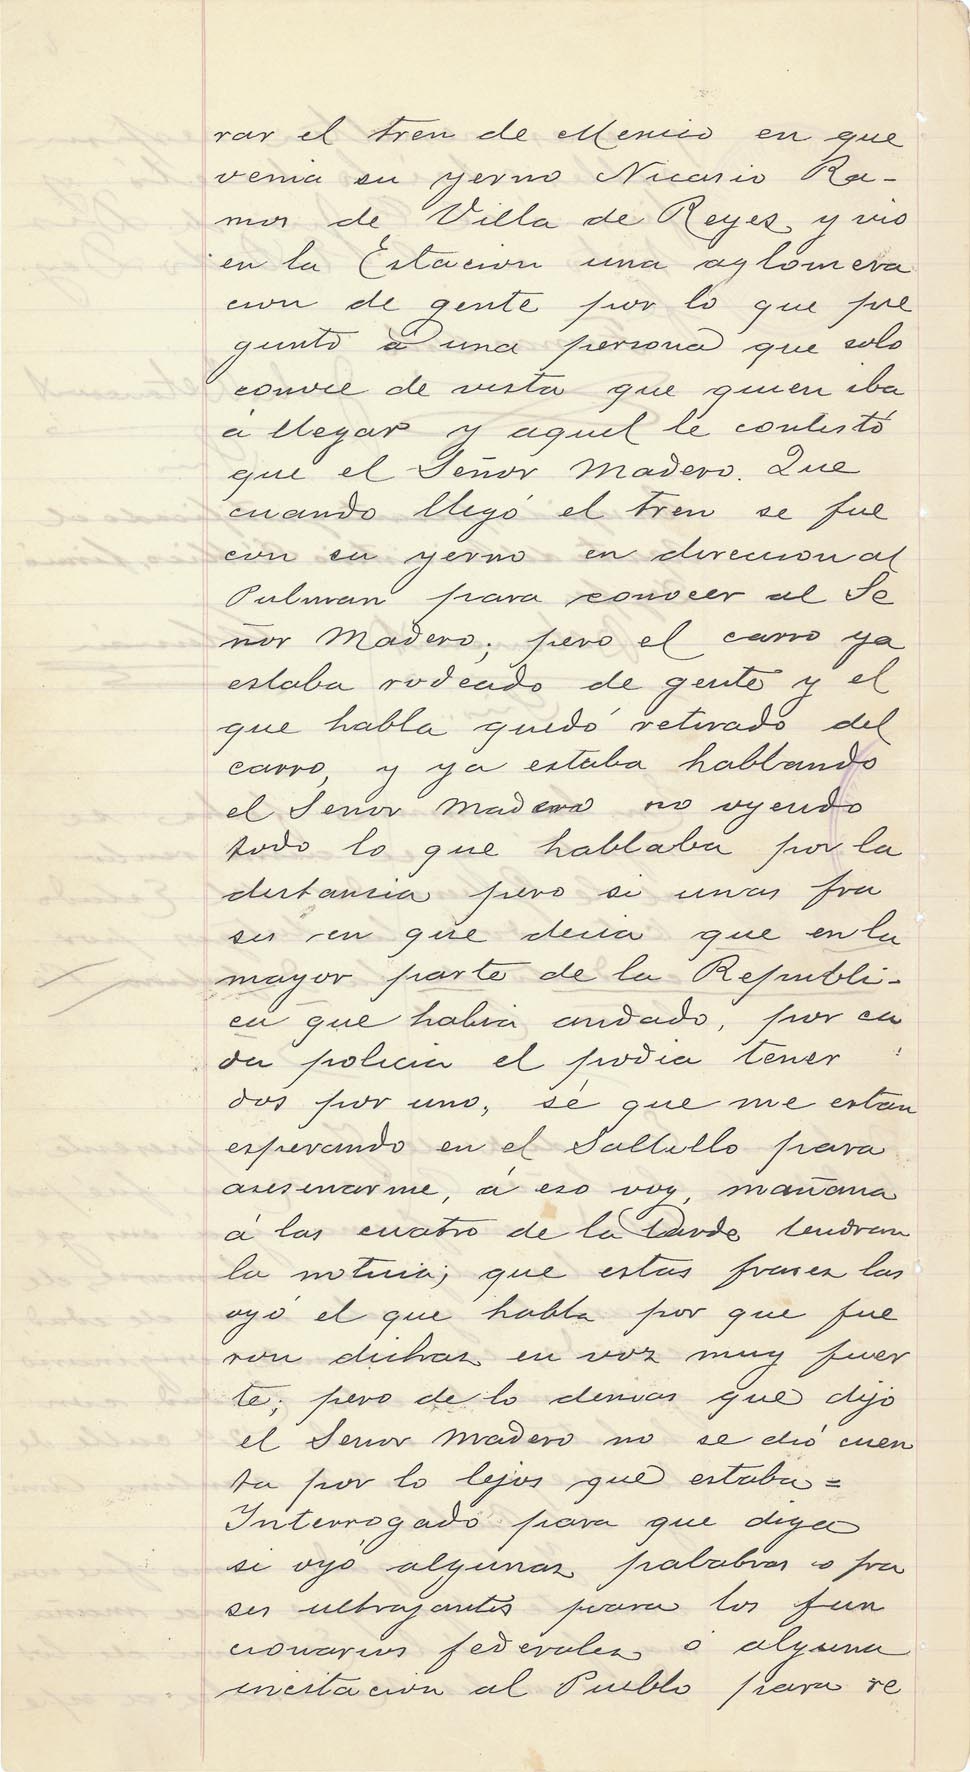 rar el tren de Mexico en que
venia su yerno Nicasio Ra-
mos de Villa de Reyes, y vio
en la Estacion una aglomera
cion de gente por lo que pre
guntó á una persona que solo
conoce de vista que quien iba
á llegar y aquel le contestó
que el Señor Madero. Que
cuando llegó el tren se fue
con su yerno en direccion al
Pulman para conocer al Se
ñor Madero; pero el carro ya
estaba rodeado de gente y el
que habla quedó retirado del
carro, y ya estaba hablando
el Señor Madero no oyendo
todo lo que hablaba por la
distancia pero si unas fra
ses en que decia que en la
mayor parte de la Republi-
ca que habia andado, por ca
da policia el podia tener
dos por uno, sé que me estan
esperando en el Saltillo para
asesinarme, á eso voy, mañana
á las cuatro de la tarde tendran
la noticia; que estas frases las
oyó el que habla por que fue
ron dichas en voz muy fuer
te; pero de lo demas que dijo
el Señor Madero no se dió cuen
ta por lo lejos que estaba=
Interrogado para que diga
si oyó algunas palabras o fra
ses ultrajantes para los fun
cionarios federales ó alguna
incitacion al Pueblo para re